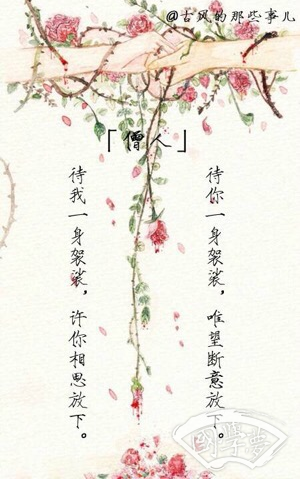 @古风的那些事儿
「僧人」
待你一身袈裟，唯望断意放下。
待我一身袈裟，许你相思放下。
國學夢